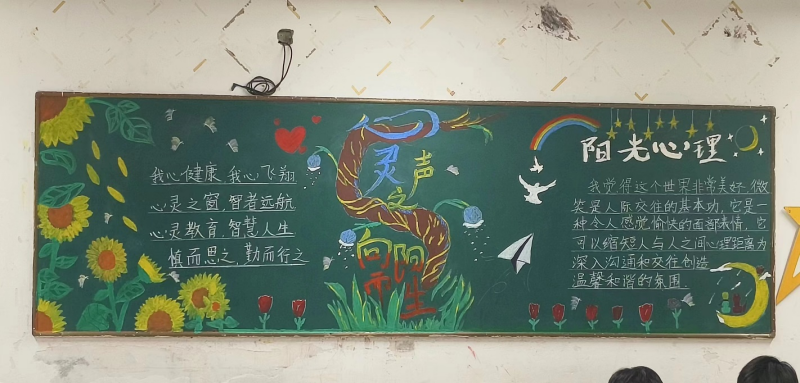 我心健康,我心飞翔
心灵之窗,智者远航
心灵教育,智慧人生
慎而思之,勤而行之
心灵之声
向阳而生
阳光心理
我觉得这个世界非常美好,微
笑是人际交往的基本功,它是一
种令人感觉愉快的面部表情,它
可以缩短人与人之间心理距离为
深入沟通和交往创造
温馨和谐的氛围.